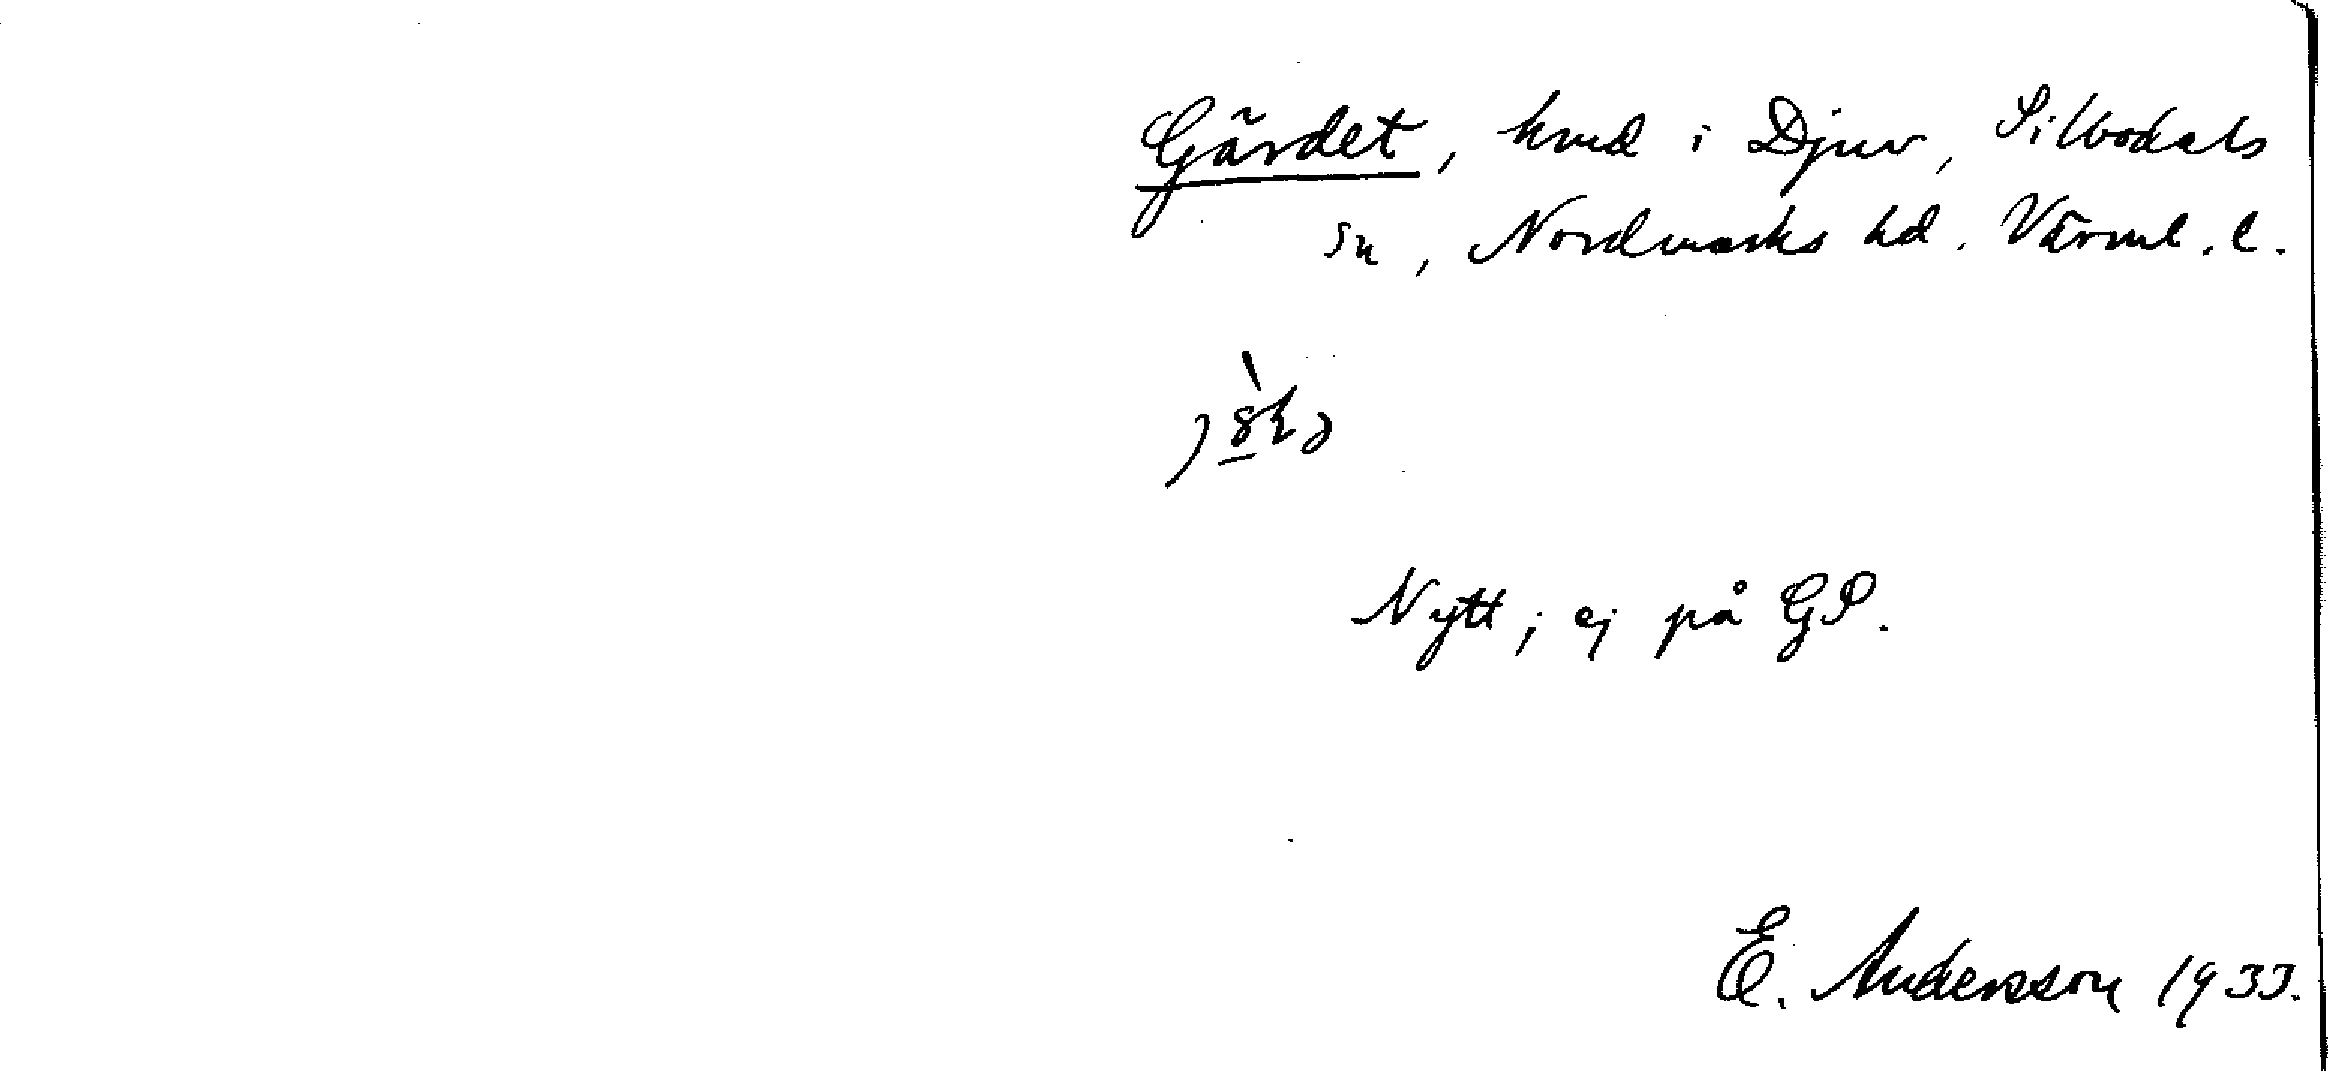 Gärdet, hmd i Djuv, Silbodals
sn, Nordmarks hd. Värml. l.
Nytt; ej på GS.
E. Andersson 1933.